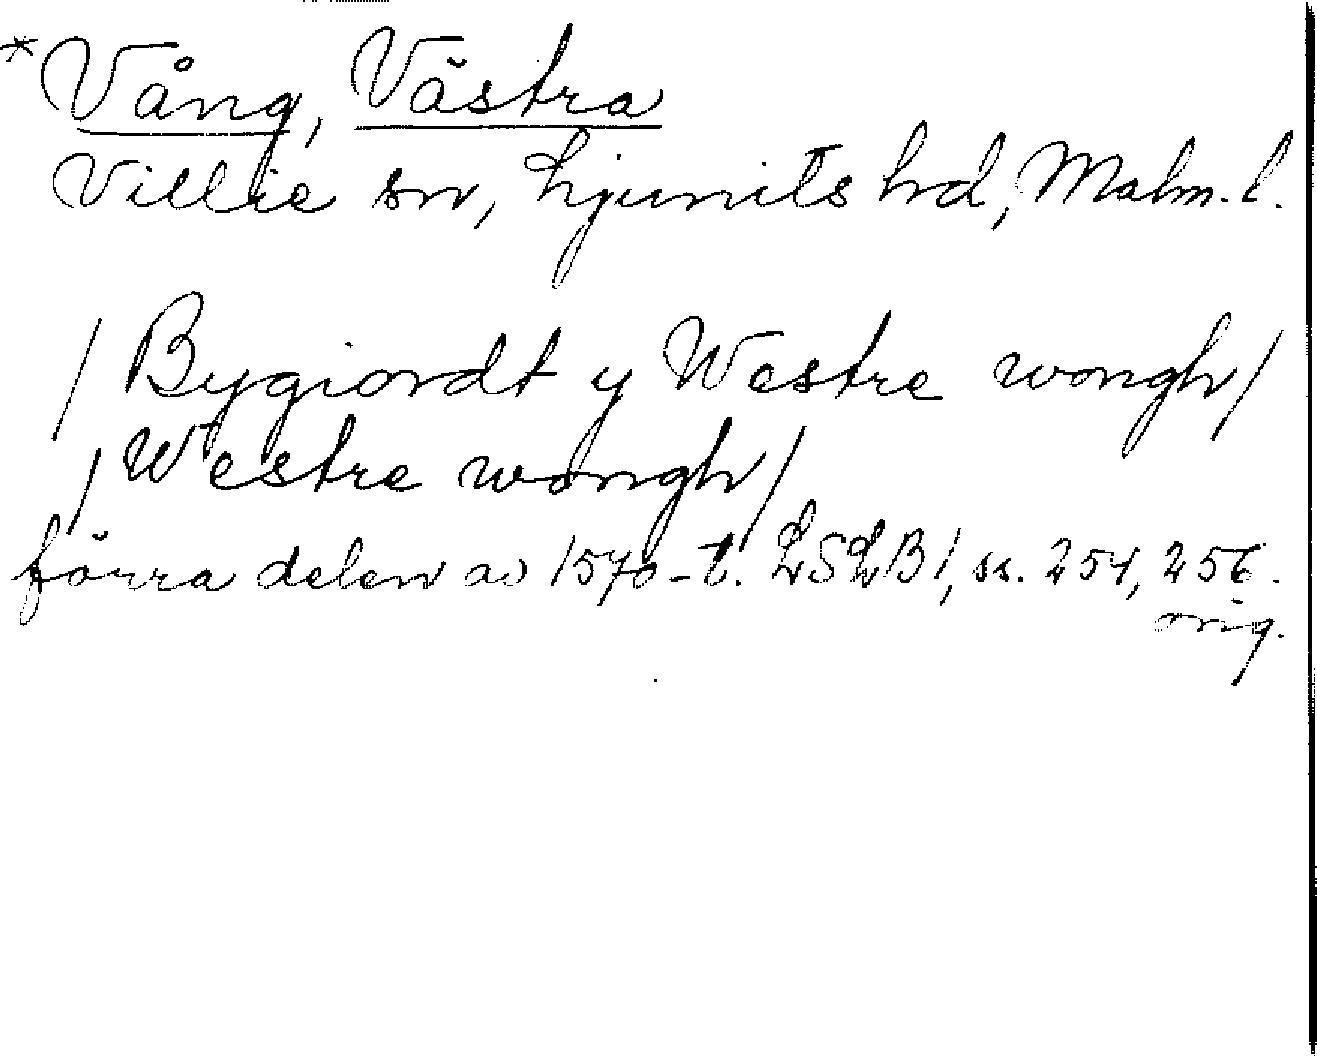 *Vång, Västra
Villie sn, Ljunits hd, Malm. l.
/Bygiordt y Westre wongh/
/Westre wongh/
förra delen av 1570-t. LSLB 1, ss. 254, 256.
orig.